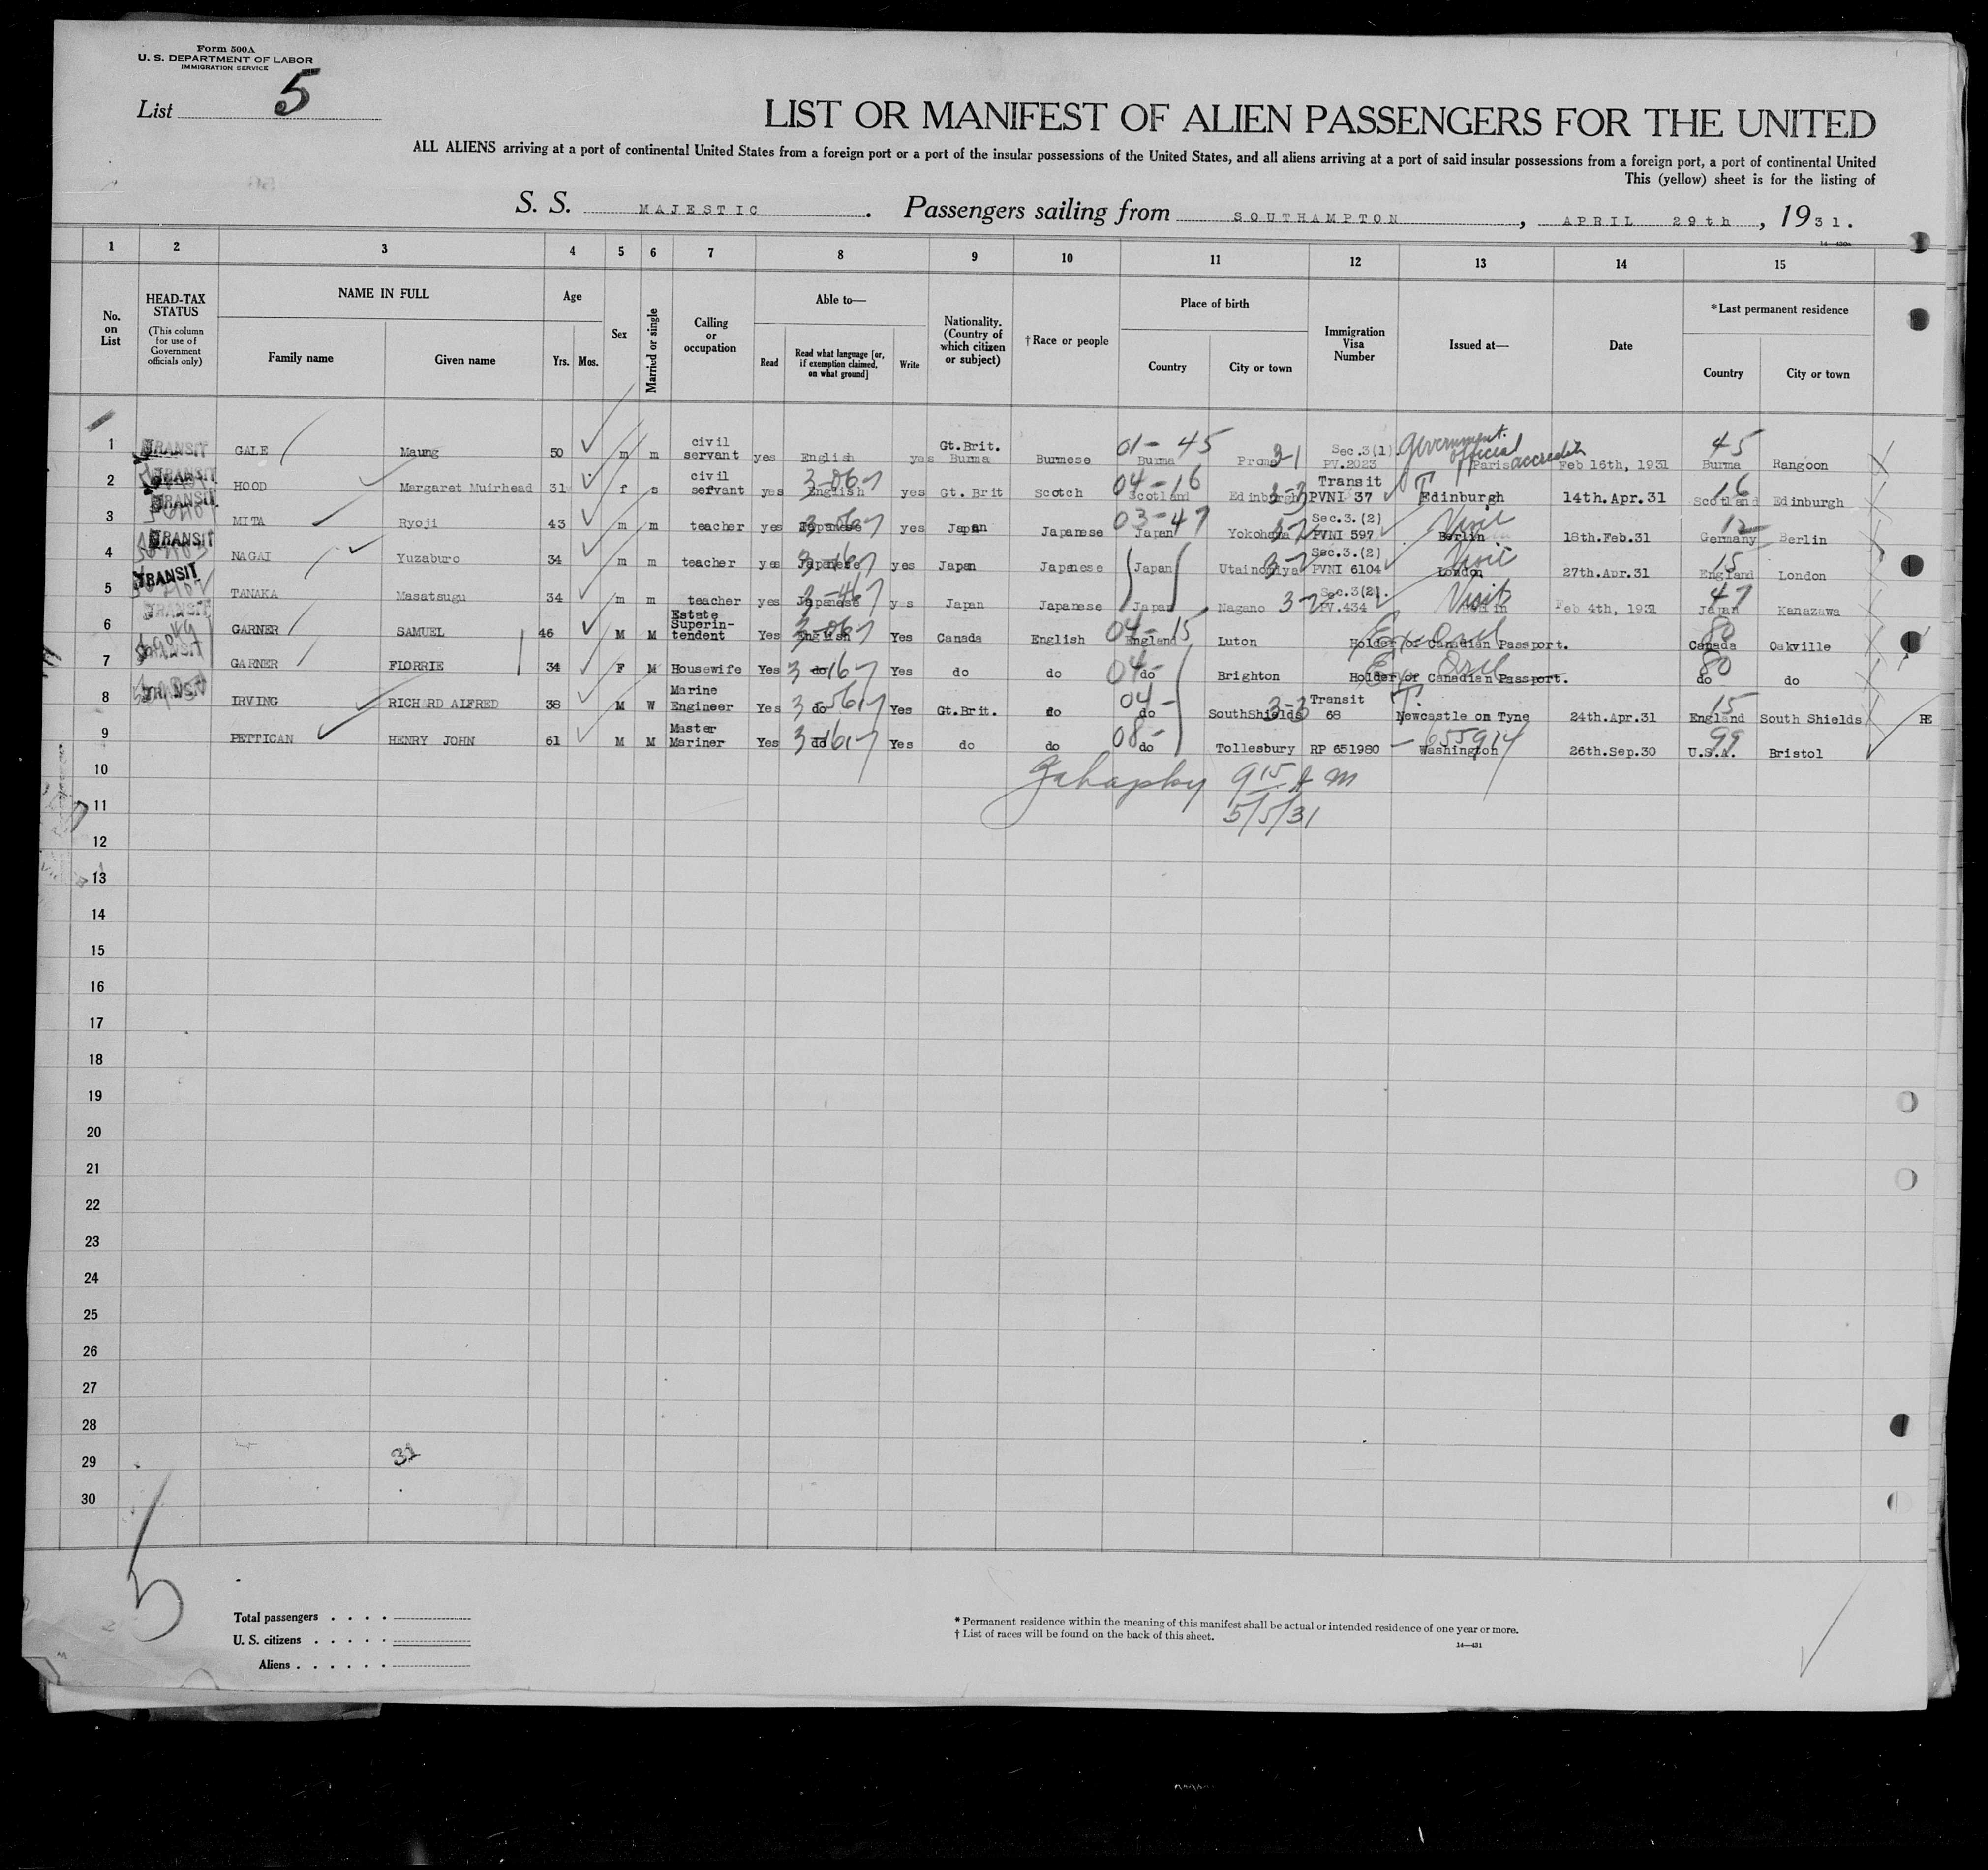 Form 500A
U. S. DEPARTMENT OF LABOR
IMMIGRATION SERVICE
List 5
LIST OR MANIFEST OF ALIEN PASSENGERS FOR THE UNITED
ALL ALIENS arriving at a port of continental United States from a foreign port or a port of the insular possessions of the United States, and all aliens arriving at a port of said insular possessions from a foreign port, a port of continental United
This (yellow) sheet is for the listing of
S. S. MAJESTIC. Passengers sailing from SOUTHAMPTON, APRIL 29th, 1931.
1 2 3 4 5 6 7 8 9 10 11 12 13 14 15
No. on List
HEAD-TAX STATUS (This column for use of Government officials only)
NAME IN FULL Family name Given name
Age Yrs. Mos.
Sex
Married or single
Calling or occupation
Able to— Read Read what language [or, if exemption claimed, on what ground] Write
Nationality. (Country of which citizen or subject)
†Race or people
Place of birth Country City or town
Immigration Visa Number
Issued at—
Date
*Last permanent residence Country City or town
1 TRANSIT GALE Maung 50 m m civil servant yes English yes Gt.Brit. Burma Burmese 01-45 Burma Prome 3-1 Sec.3(1) PV.2023 Government official accredited Paris Feb 16th, 1931 45 Burma Rangoon
2 TRANSIT HOOD Margaret Muirhead 31 f s civil servant yes English yes Gt. Brit Scotch 04-16 Scotland Edinburgh 3-3 Transit PVNI 37 T Edinburgh 14th.Apr.31 16 Scotland Edinburgh
3 TRANSIT MITA Ryoji 43 m m teacher yes Japanese yes Japan Japanese 03-47 Japan Yokohama Sec.3.(2) PVNI 597 Visit Berlin 18th.Feb.31 12 Germany Berlin
4 TRANSIT NAGAI Yuzaburo 34 m m teacher yes Japanese yes Japan Japanese Japan Utainomiya Sec.3.(2) PVNI 6104 Visit London 27th.Apr.31 15 England London
5 TRANSIT TANAKA Masatsugu 34 m m teacher yes Japanese y s Japan Japanese Japan Nagano Sec.3(2). PV.434 Visit Feb 4th, 1931 47 Japan Kanazawa
6 TRANSIT GARNER SAMUEL 46 M M Estate Superin-tendent Yes English Yes Canada English 04-15 England Luton Holder of Canadian Passport. 80 Canada Oakville
7 GARNER FLORRIE 34 F M Housewife Yes do Yes do do 04- do Brighton Holder of Canadian Passport. 80 do do
8 IRVING RICHARD ALFRED 38 M W Marine Engineer Yes do Yes Gt.Brit. do 04- do SouthShields 3-3 Transit 68 T. Newcastle on Tyne 24th.Apr.31 15 England South Shields
9 PETTICAN HENRY JOHN 61 M M Master Mariner Yes do Yes do do 08- do Tollesbury RP 651980 — 655914 Washington 26th.Sep.30 99 U.S.A. Bristol
10
915 A M
11
5/5/31
12
13
14
15
16
17
18
19
20
21
22
23
24
25
26
27
28
29
30
5
Total passengers
U. S. citizens
Aliens
* Permanent residence within the meaning of this manifest shall be actual or intended residence of one year or more.
† List of races will be found on the back of this sheet.
14—431